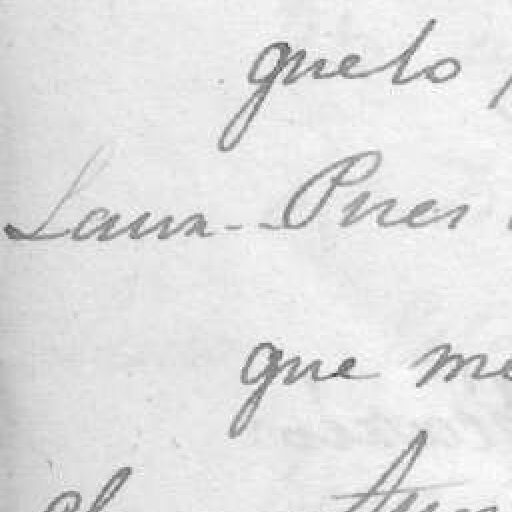 quelo
Laura-- Pues
que me